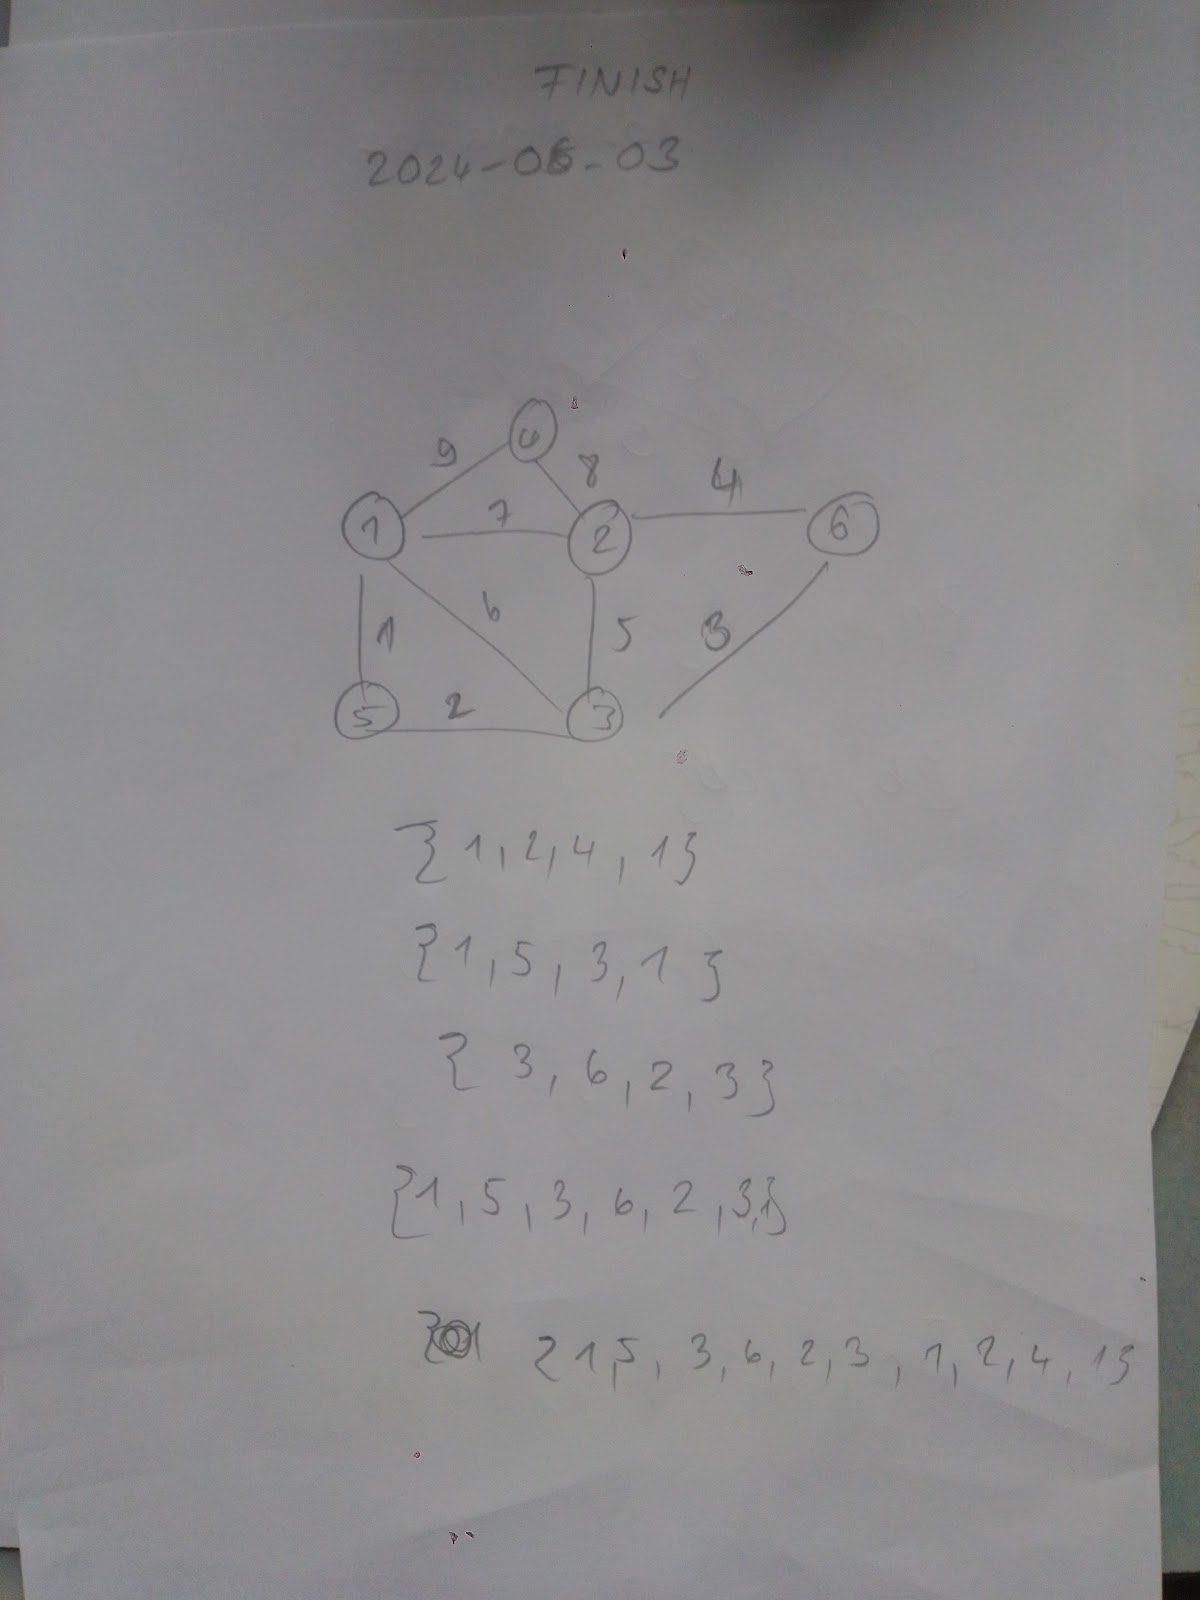 FINISH
2024-06-03
4
9
8
4
1
7
2
6
6
1
5
3
5
2
3
{1, 2, 4, 1}
{1, 5, 3, 1}
{3, 6, 2, 3}
{1, 5, 3, 6, 2, 3, 1}
{1, 5, 3, 6, 2, 3, 1, 2, 4, 1}